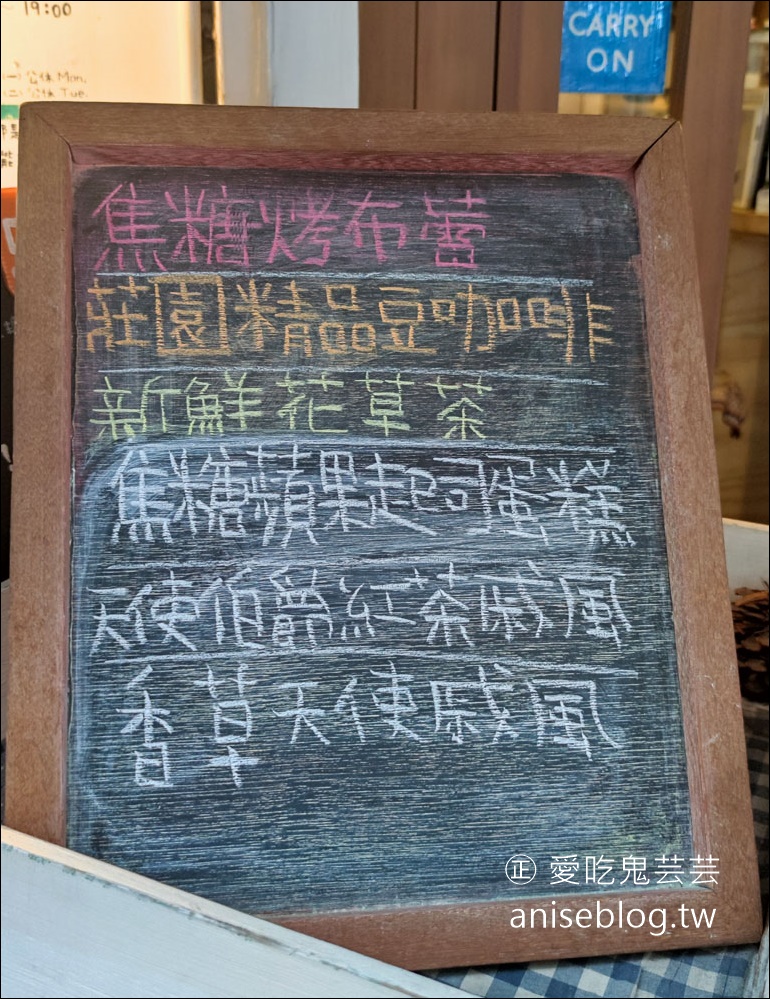 19:00
(一)公休 Mon.
(二)公休 Tue.
CARRY
ON
焦糖烤布蕾
莊園精品豆咖啡
新鮮花草茶
焦糖蘋果起司蛋糕
天使伯爵紅茶戚風
香草天使戚風
㊣ 愛吃鬼芸芸
aniseblog.tw